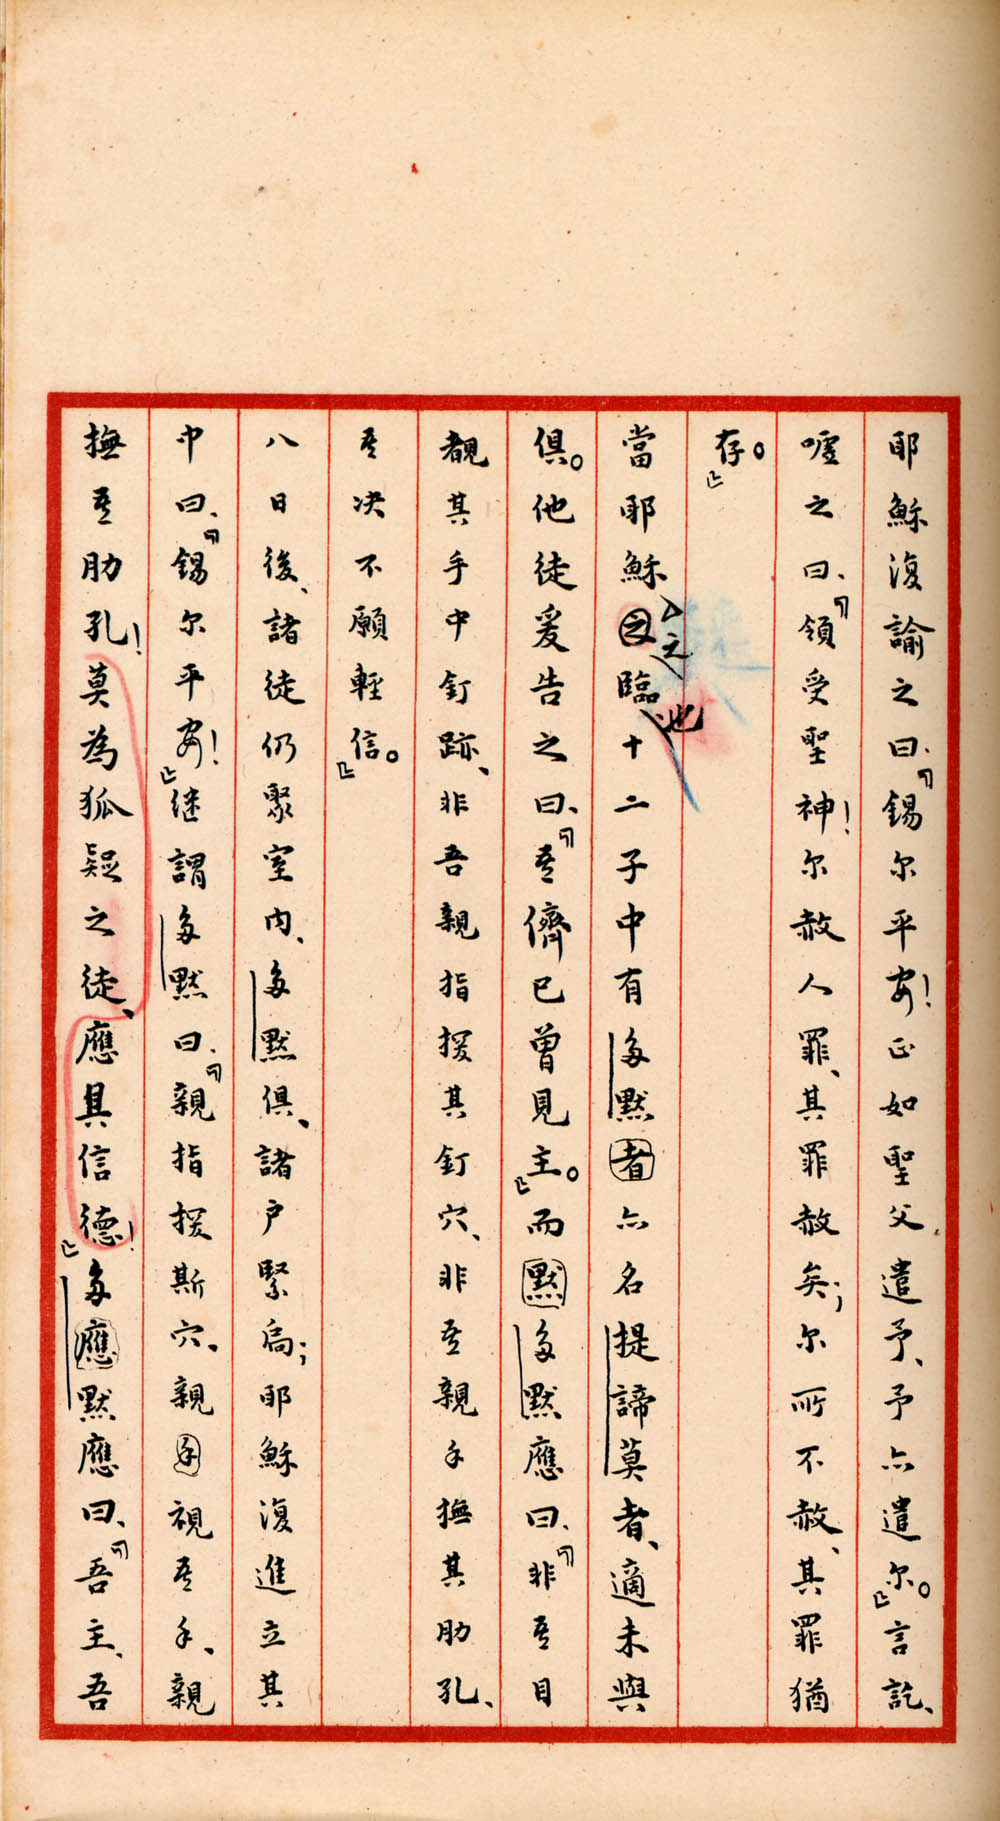 耶穌復諭之曰、「錫尔平安！正如聖父遣予、予亦遣尔。」言訖、
噓之曰、「領受聖神！尔赦人罪、其罪赦矣；尔所不赦、其罪猶
存。」
當耶穌之臨也十二子中有多默者亦名提諦莫者、適未與
俱。他徒爰告之曰、「吾儕已曾見主。」而默多默應曰、「非吾目
覩其手中釘跡、非吾親指援其釘穴、非吾親手撫其肋孔、
吾決不願輕信。」
八日後、諸徒仍聚室內、多默俱、諸戶緊扃；耶穌復進立其
中曰、「錫尔平安！」继謂多默曰、「親指援斯穴、親手視吾手、親
撫吾肋孔！莫為狐疑之徒、應具信德！」多應默應曰、「吾主、吾